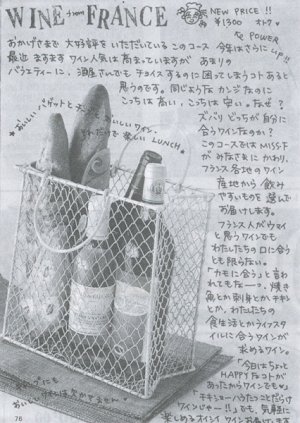 WINE from FRANCE
NEW PRICE!!
¥1300 オトク。
おかげさまで 大好評を いただいている このコース
今年はさらに
& POWER UP!!
最近 ますます ワイン人気は 高まっていますが あまりの
バラエティーに、酒屋さんでも チョイスするのに 困ってしまうコトあると
思うのです。同じような カンジなのに
こっちは高い、こっちは安い。なぜ?
★おいしいバゲットとチーズ、おいしいワイン。
それだけで 楽しい LUNCH★
ズバリ どっちが 自分に
合うワインなのか?
このコースではMISS・F
が みなさまに かわり、
フランス各地のワイン
産地から 飲み
やすいものを 選んで
お届けします。
フランス人がウマイ
と思うワインでも
わたしたちの口に合う
とも限らない。
「カモに合う」と言わ
れても…なっ…。焼き
魚とか刺身とか、チキン
とか、わたしたちの
食生活とかライフスタ
イルに合うワインが
求めるワイン。
今日はちょっと
HAPPYなコトが
あったからワインでも♥
「チキンソーパうたことだしっけ
ワインじゃー!!」でも、気軽に
楽しめるオイシイ ワインお届けします
テーブルにも
おいしいワインは欠かせません♥
76